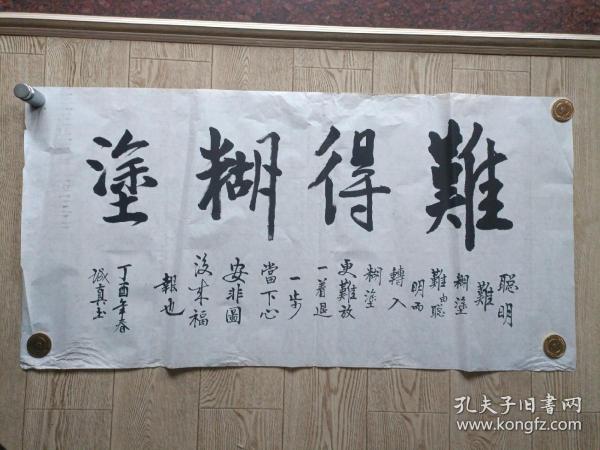 難得糊塗
聰明
難
糊塗
難由聰
明而
轉入
糊塗
更難放
一着退
一步
當下心
安非圖
後來福
報也
丁酉年春
誠真玉
孔夫子旧書网
www.kongfz.com